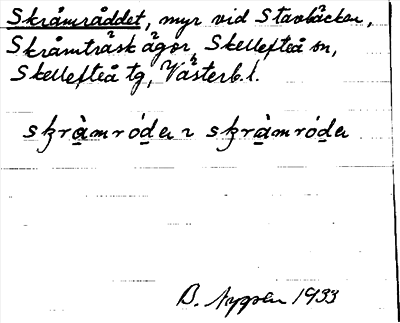 Skråmråddet, myr vid Stavbäcken,
Skråmträsk ägor, Skellefteå sn,
Skellefteå tg, Västerb. l.
skràmróda ~ skràmróda
B. 1933